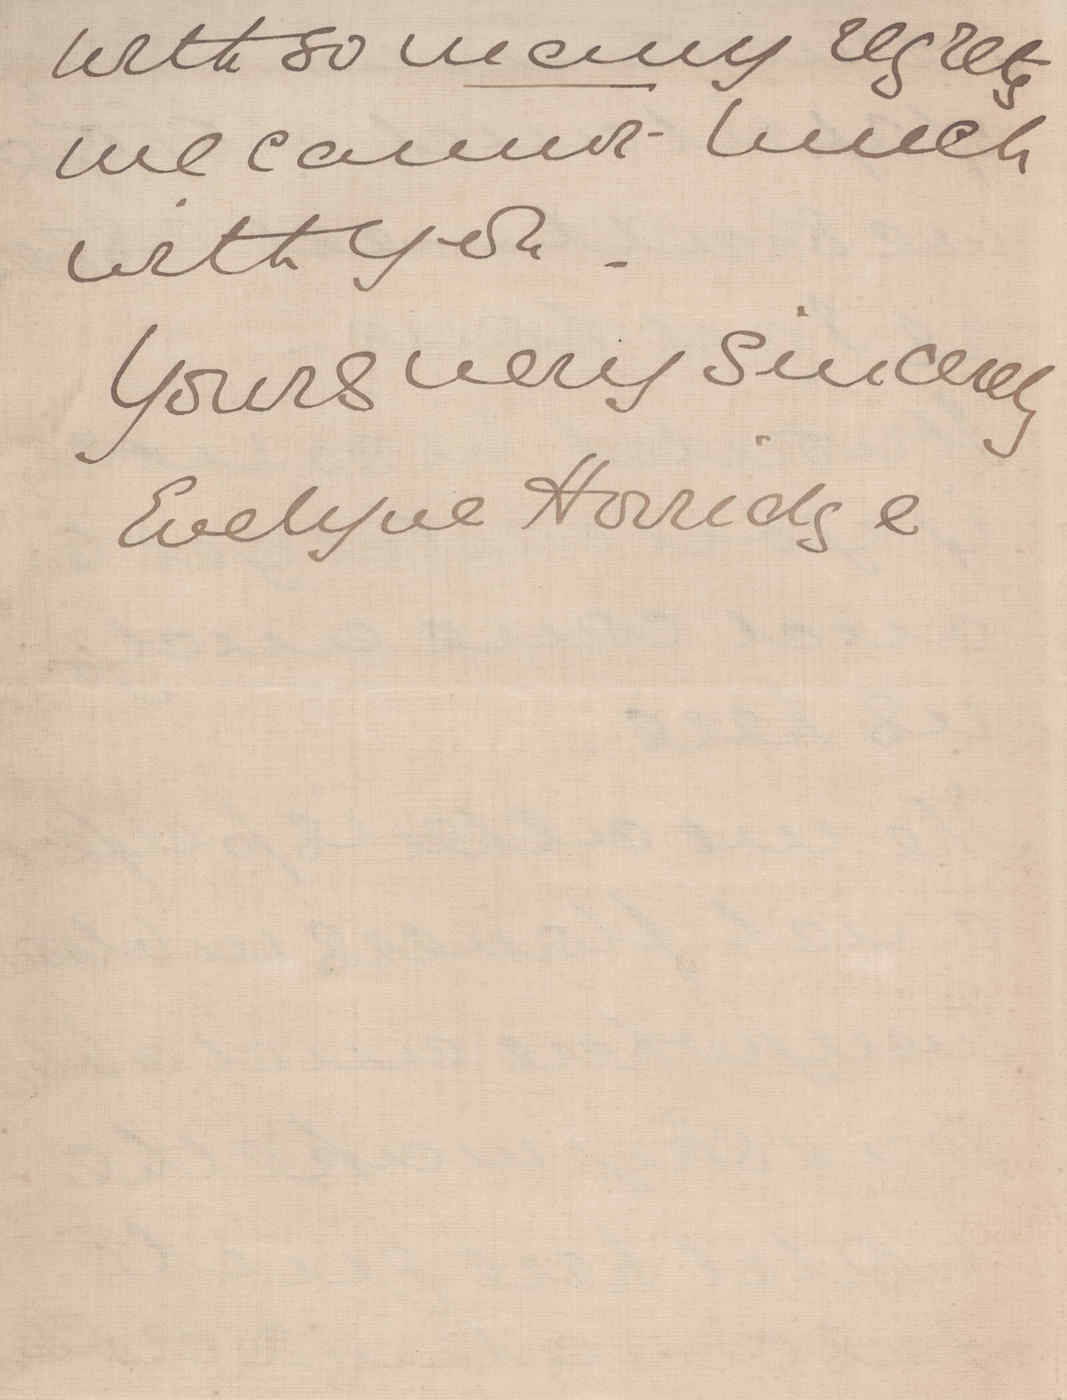 with so many regrets
we cannot lunch
with you -
Yours very sincerely
Evelyne Horridge